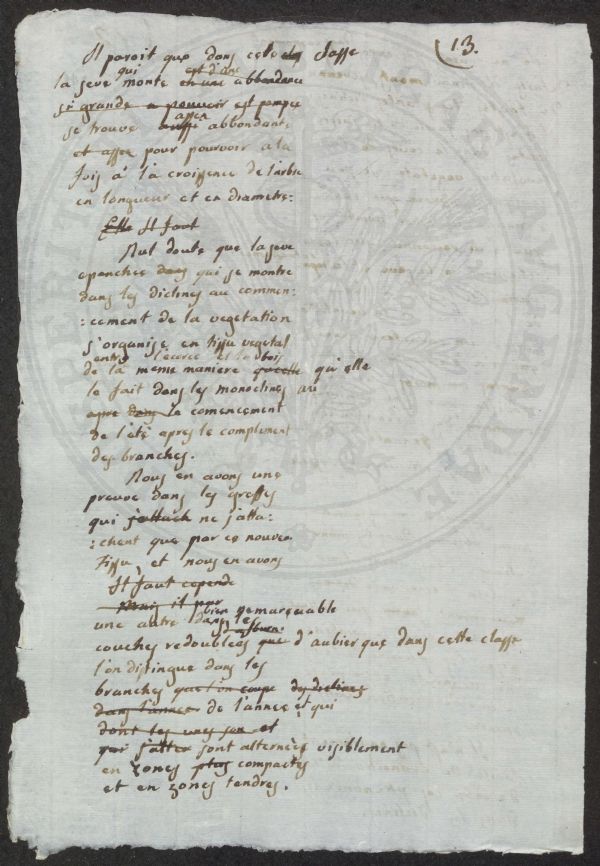 13.
Il paroit que dans cete classe
la seve qui monte en une est d'une abbondance
si grande a pouvoir est pompee
se trouve assez abbondante
et assez pour pourvoir a la
fois á la croissence de l'arbre
en longueur et en diametre.
Elle Il faut
Nul doute que la seve
epanchee dans qui se montre
dans les diclines au commen:
:cement de la vegetation
s'organise en tissu vegetal
entre l'ecorce et le bois
de la meme maniere qu'elle
le fait dans les monoclines au
apre dans le comencement
de l'été apres le compliment
des branches.
Nous en avons une
preuve dans les greffes
qui s'attach ne s'atta:
:chent que par ce nouveau
tissu, et nous en avons
Il faut cepend
Mais il par
une autre bien remarquable
dans les
couches redoublées que d'aubier que dans cette classe
l'on distingue dans les
branches que l'on coupe des diclines
dans l'année de l'année et qui
dont les unes son et
qui s'alter sont alternées visiblement
en zones plus compactes
et en zones tendres.